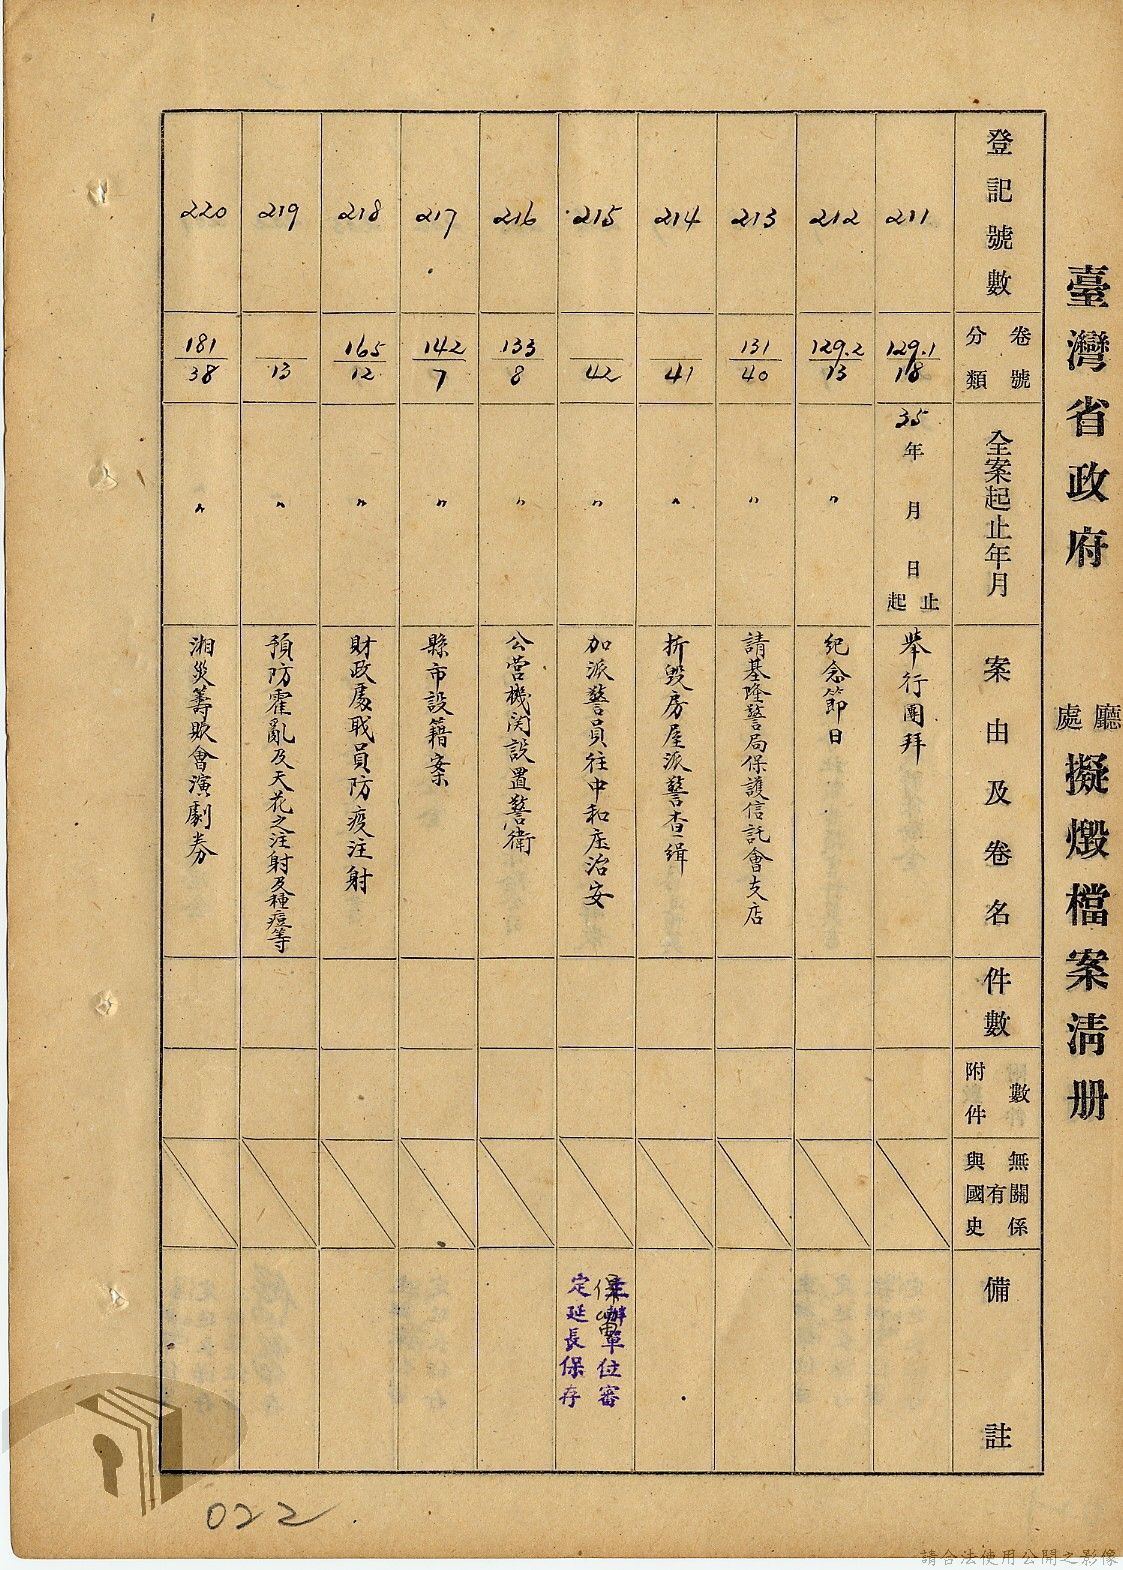 臺灣省政府 廳處 擬燬檔案清册
登記號數
卷號
分類
全案起止年月
案由及卷名
件數
附件數
與國史有無關係
備註
211
129.1
18
35年 月 日起止
舉行團拜
212
129.2
13
〃
紀念節日
213
131
40
〃
請基隆警局保護信託會支店
214
41
〃
折毀房屋派警查緝
215
42
〃
加派警員往中和庄治安
主辦單位審
定延長保存
216
133
8
〃
公营機関設置警衛
217
142
7
〃
縣市設籍案
218
165
12
〃
財政處职員防疫注射
219
13
〃
預防霍亂及天花之注射及種痘等
220
181
38
〃
湘災籌欵會演劇券
022
請合法使用公開之影像